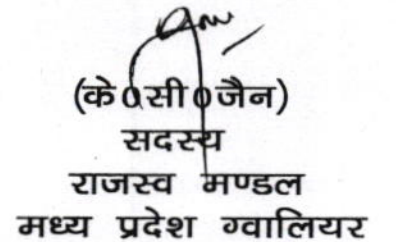 (के०सी०जैन)
सदस्य
राजस्व मण्डल
मध्य प्रदेश ग्वालियर